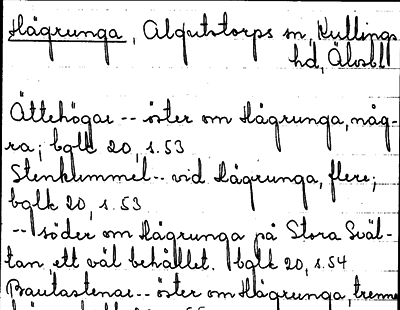 Hågrunga, Algutstorps sn, Kullings
hd, Älvsbl
Ättehögar -- öster om Hågrunga, någ-
ra; bglk 20, s.53
Stenkummel -- vid Hågrunga, flere;
bglk 20, s.53
-- söder om Hågrunga på Stora Sväl-
tan, ett väl behållet. bglk 20, s.54
Bautastenar -- öster om Hågrunga, trenne